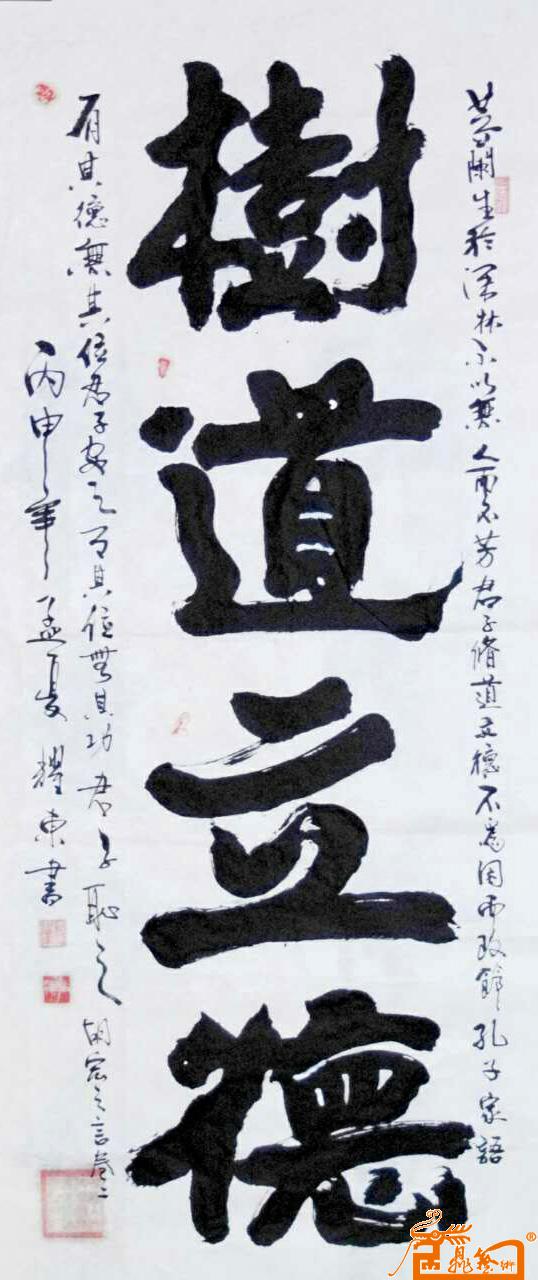 芝蘭生於深林不以無人而不芳君子脩道立德不為困而改節 孔子家語
樹道立德
有其德無其位君子安之有其位無其功君子恥之 胡宏之言卷二
丙申年孟夏耀東書
鼎藝術